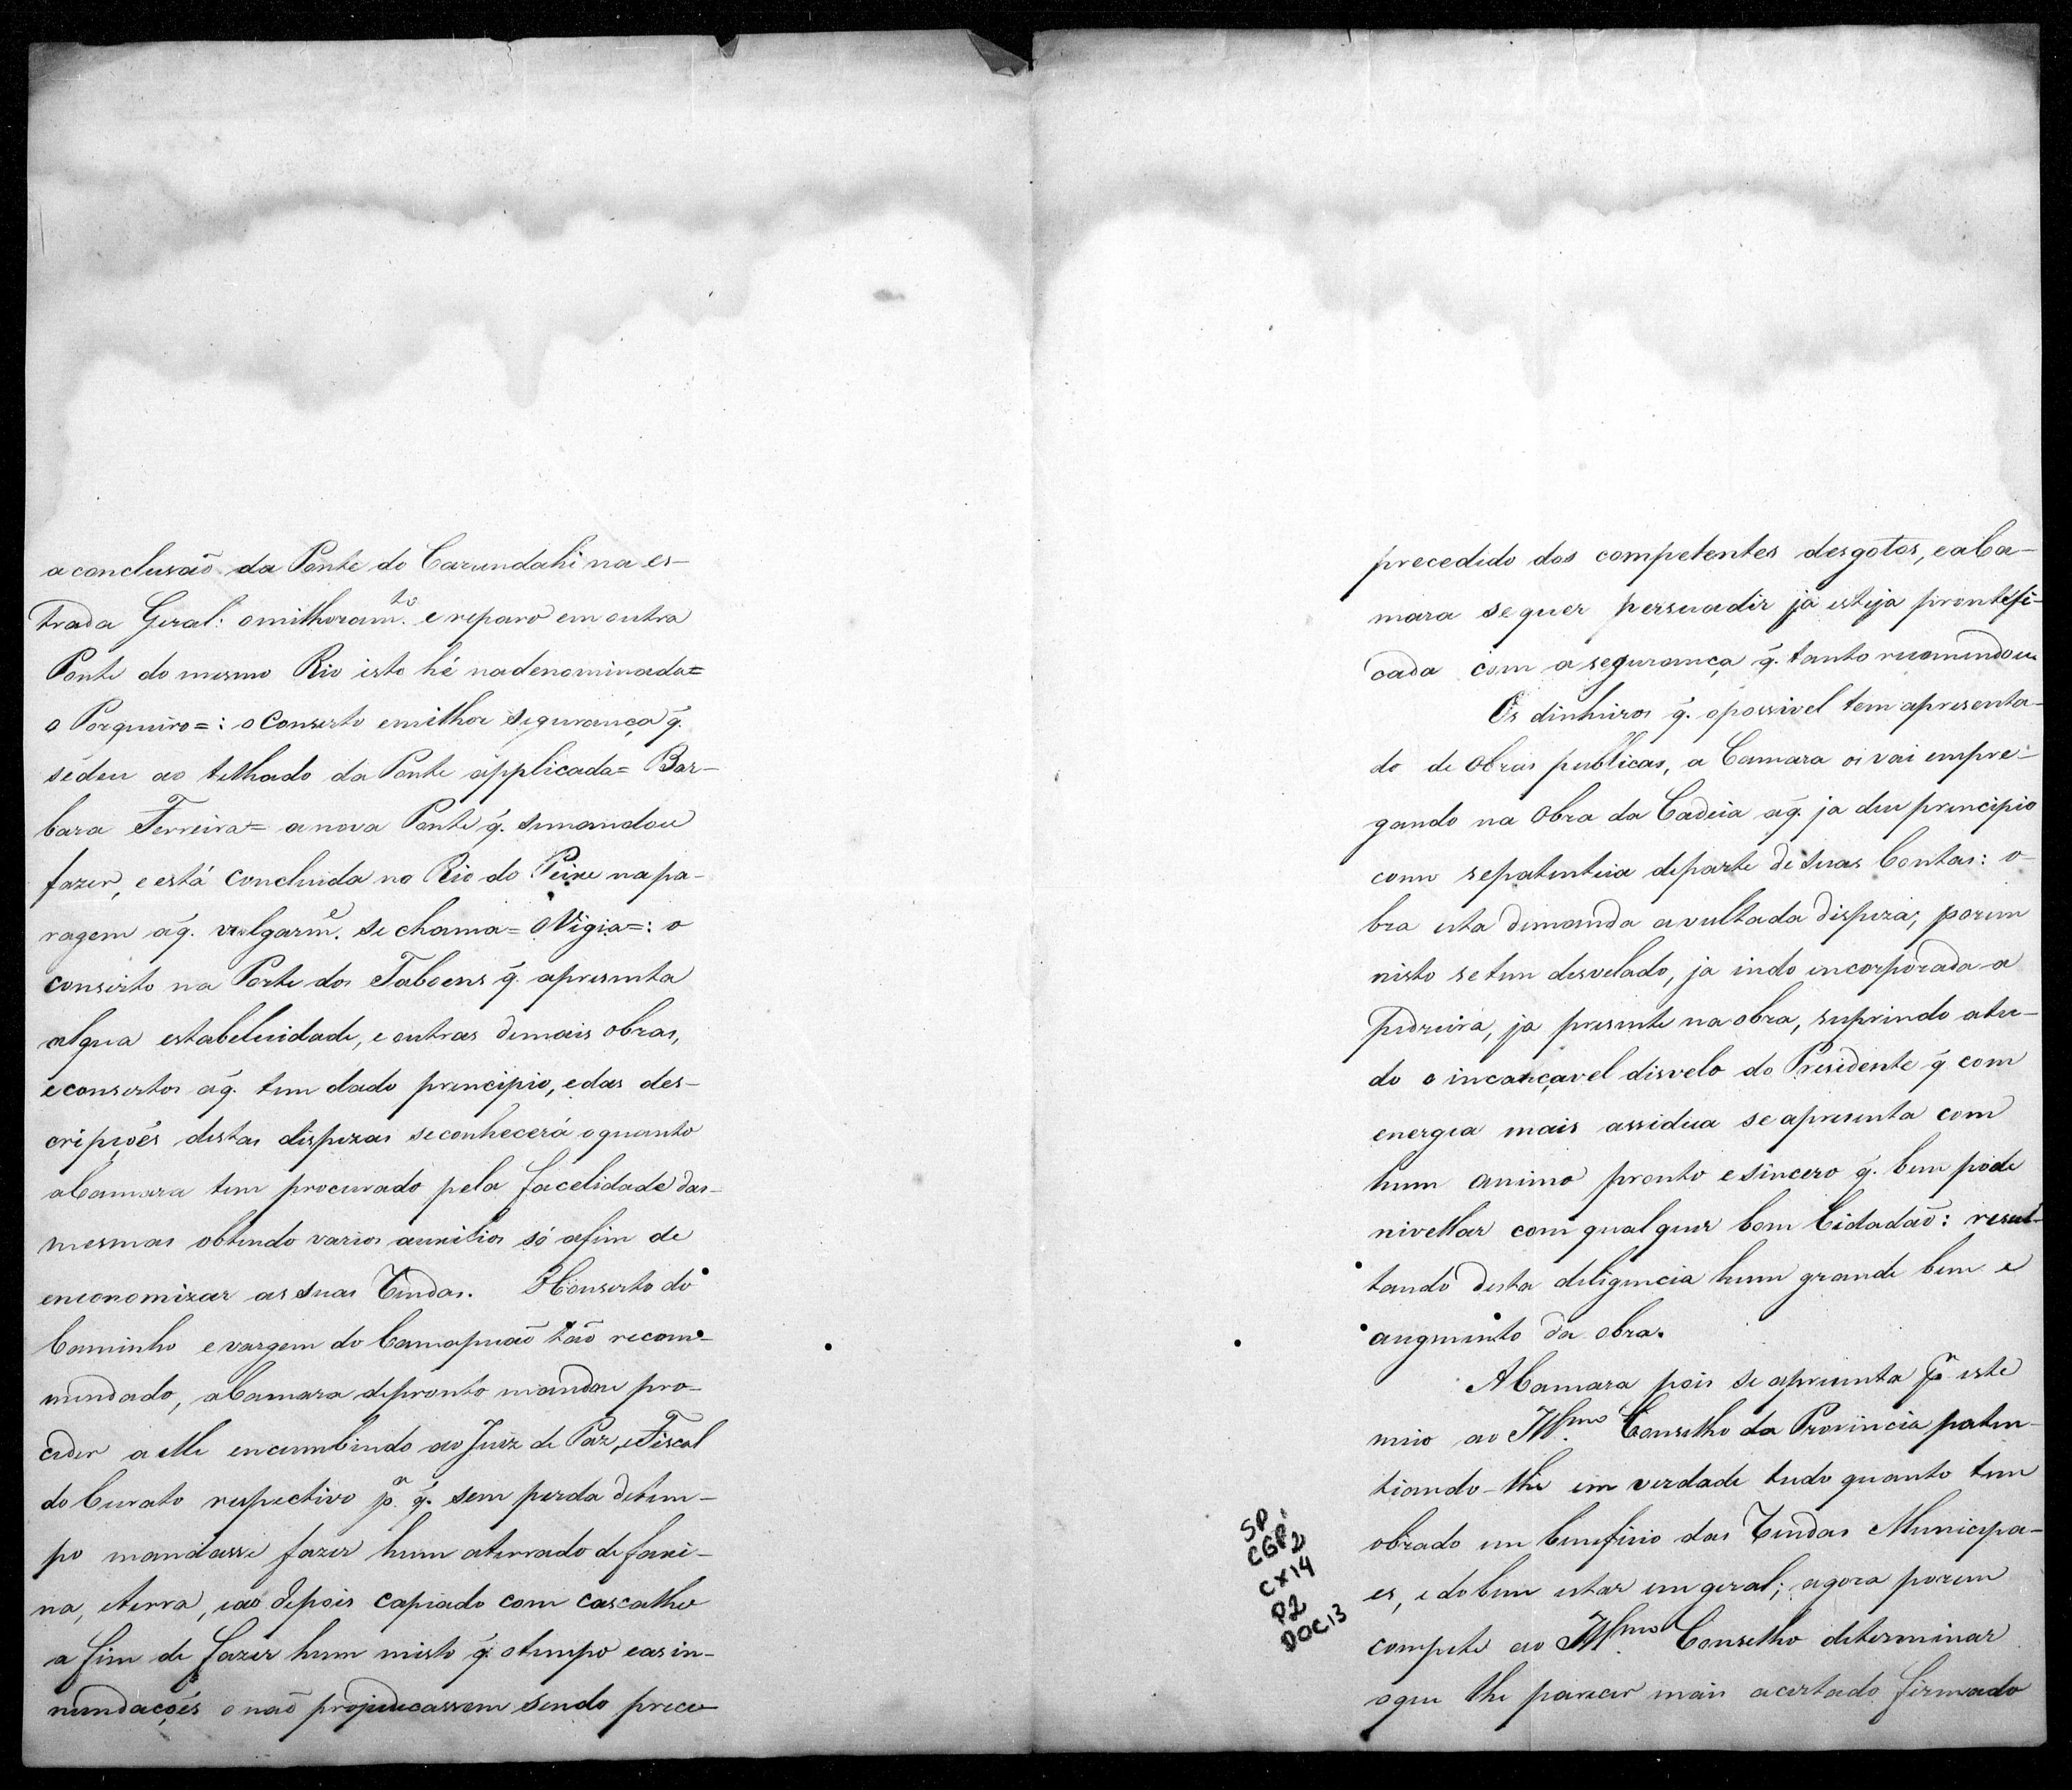 a conclusaõ da Ponte do Carandahi na es-
trada Geral: o milhoram.to e reparo em outra
Ponte do mesmo Rio isto hé na denominada=
o Porqueiro=: o Conserto e milhor segurança q̃.
se deu ao telhado da Ponte applicada= Bar-
bara Ferreira= a nova Ponte q̃. se mandou
fazer, e está concluida no Rio do Peixe na pa-
ragem a q̃. vulgarm.e se chama= o Vigia=: o
conserto na Ponte dos Taboens q̃. apresenta
algũa estabelecidade, e outras demais obras,
e consertos a q̃. tem dado principio, e das des-
cripçoẽs destas dispezas se conhecerá o quanto
a Camara tem procurado pela facelidade das
mesmas obtendo varios auxilios só afim de
enconomizar as suas Rendas. O Conserto do
Caminho e vargem do Camapuaõ taõ recom-
mendado, a Camara de pronto mandou pro-
ceder a elle encumbindo ao Juiz de Paz, e Fiscal
do Curato respectivo p.a q̃. sem perda de tem-
po mandasse fazer hum aterrado de faxi-
na, e terra, e ao depois capiado com cascalho
a fim de fazer hum misto q̃. o tempo e as in-
nundaçoẽs o naõ projudicassem sendo prece
precedido dos competentes desgotos, e a Ca-
mara se quer persuadir já esteja prontefi-
cada com a segurança q̃. tanto recomendou
Os dinheiros q̃. o possivel tem apresenta-
do de Obras publicas, a Camara os vai empre-
gando na Obra da Cadeia a q̃. ja deu principio
como se patenteia de parte de suas Contas: o-
bra esta demanda avultada dispeza; porem
nisto se tem desvelado, ja indo encorporada a
Pedreira, ja presente na obra, suprindo a tu-
do o incançavel disvelo do Presidente q̃ com
energia mais assidua se apresenta com
hum animo pronto e sincero q̃. bem pode
nivellar com qualquer bom Cidadaõ: resul-
tando desta diligencia hum grande bem e
augmento da obra.
A Camara pois se apresenta p.r este
meio ao Ill.mo Conselho da Provincia paten-
tiando-lhe em verdade tudo quanto tem
obrado em beneficio das Rendas Municipa-
es, e do bem estar em geral; agora porem
compete ao Ill.mo Conselho determinar
o que lhe parecer mais acertado firmado
SP
CGP2
CX14
P2
DOC13